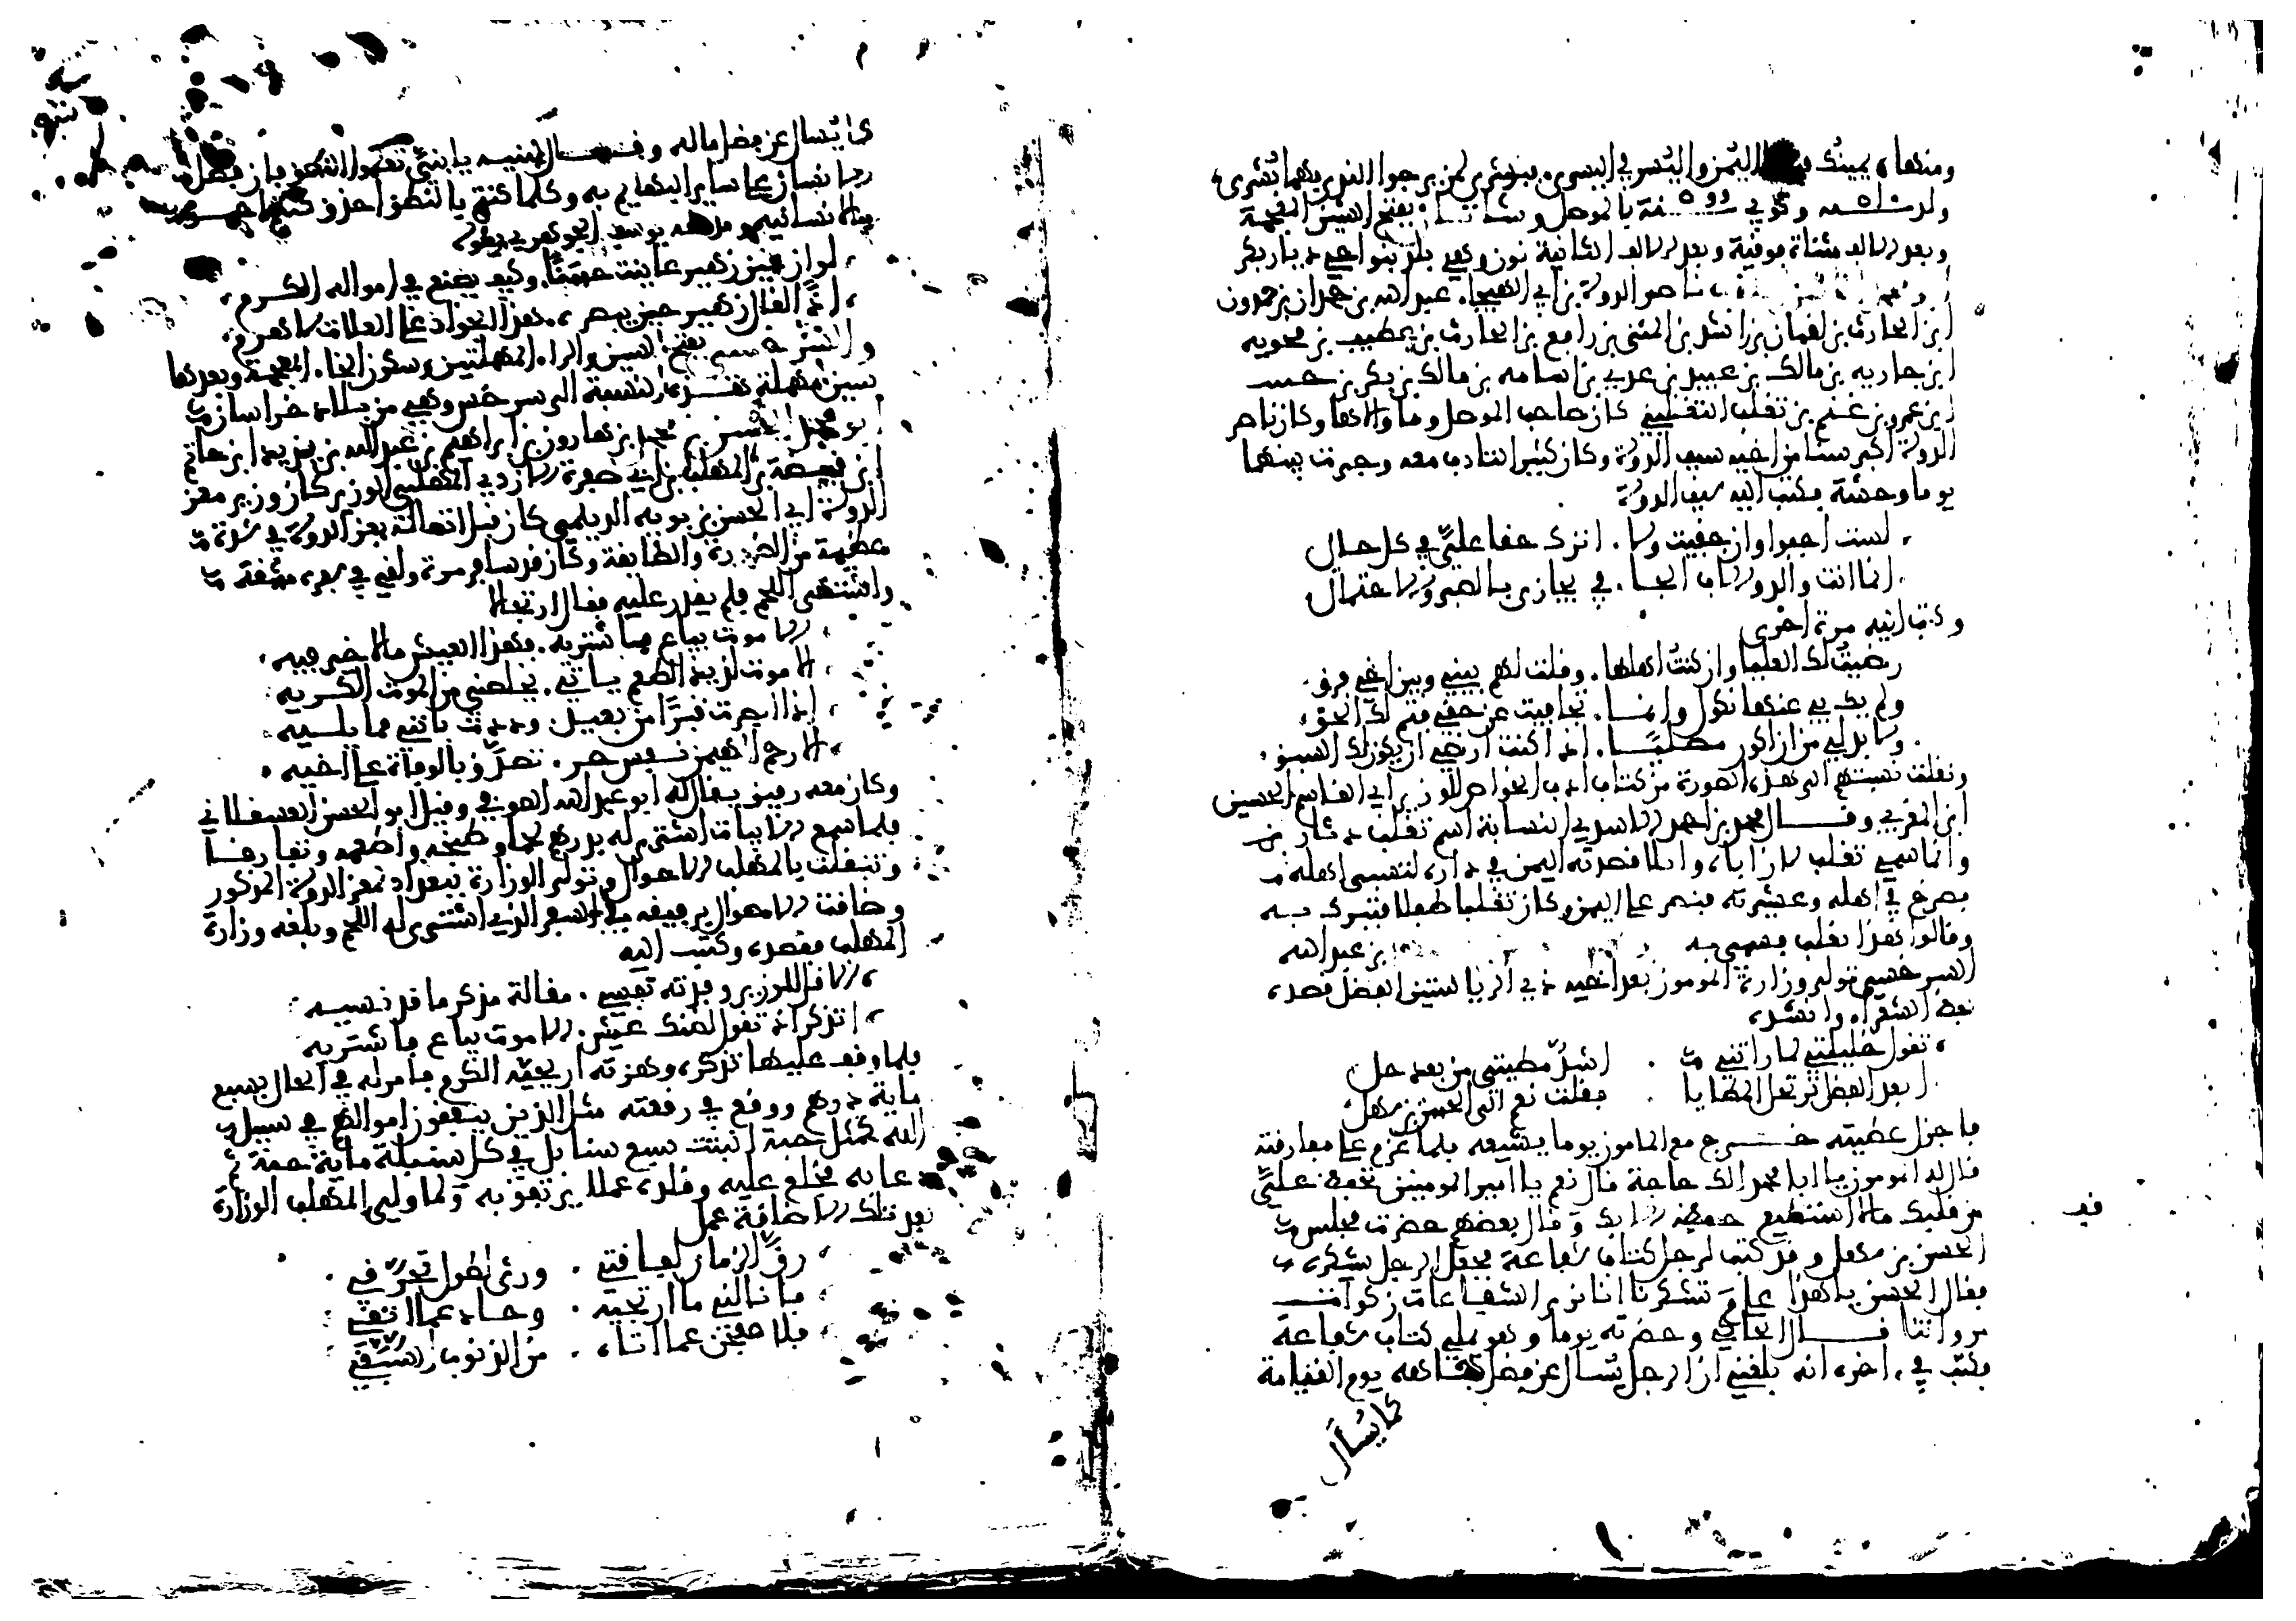 ومنها، يمينك اليمن واليسر في اليسرى، فبشرى لمن يرجوا الندى بهما بشرى،
ولد سنة وتوفي سنة بالموصل وشاتان بفتح الشين المعجمة
وبعد الالف مثناة فوفية وبعد الالف الثانية نون وهي بلد بنواحي ديار بكر
ناصر الدولة بن ابي الهيجا، عبد الله بن حمدان بن حمدون
ابن الحارث بن لقمان بن راشد بن المثنى بن رافع بن الحارث بن عطيف بن محربه
ابن جاريه بن مالك بن عبيد بن عدي بن اسامه بن مالك بن بكر بن حبيب
ابن عمرو بن غنم بن تغلب التغلبي كان صاحب الموصل وما والاها وكان ناصر
الدولة اكبر سنا من اخيه سيف الدولة وكان كثير التادب معه وجرت بينهما
يوما وحشة فكتب اليه سيف الدولة
لست اجفوا وان جفيت ولا، اترك حفا علي في كل حال
انما انت والد والاب الجا، في يجازى بالصبر والاحتمال
وكتب اليه مرة اخرى
رضيت لك العليا وان كنت اهلها، وفلت لهم بيني وبين اخي فرق
ولم يك بي عنها نكول وانما، تجافيت عن حفي فتم لك الحق،
ولا بد لي من ان اكون مصليا، اذا كنت ارضى ان يكون لك السبق،
ونفلت نسبتهم الى هذه الصورة من كتاب ادب الخواص للوزير ابي الفاسم الحسين
ابن المغربي وفال محمد بن احمد الاسدي النسابة اسم تغلب دثار
وانما سمي تغلب لان اباه وايلا فصدته اليمن في داره لتسبى اهله
فصرخ في اهله وعشيرته فنصر على اليمن وكان تغلب طفلا فتبرك به
وفالوا هذا تغلب فسمي به بن عبد الله
السرخسي تولى وزارة المومون بعد اخيه ذي الرياستين الفضل فصده
بعض الشعراء وانشده
تفول خليلتي لما راتني، اشد مطيتي من بعد حل
ابعد الفضل ترتحل المطايا، ففلت نعم الى الحسن بن سهل
فاجزل عطيته خرج مع المامون يوما يشيعه فلما عزم على مفارفته
فال له المومون يا ابا محمد الك حاجة فال نعم يا امير المومنين تحفظ علي
من فلبك مالا استطيع حفظه الا بك وفال بعضهم حضرت مجلس
الحسن بن سهل وفد كتب لرجل كتاب شفاعة فجعل الرجل يشكره
ففال الحسن يا هذا علام تشكرنا انا نرى الشفاعات زكوات
مرواتنا فال الحاكي وحضرته يوما وهو يملي كتاب شفاعة
فكتب في اخره انه بلغني ان الرجل يسال عن فضل جاهه يوم القيامة
كما يسال
كما يسال عن فضل ماله وفال لبنيه يا بني تعلموا النطق فان فضل
الانسان على ساير البهايم به وكلما كنتم بالنطق احذق كنتم احق
بالانسانية ومدحه يوسف الجوهري بفوله
لو ان عين زهير عاينت حسنا، وكيف يصنع في امواله الكرم
اذا لفال زهير حين يبصره، هذا الجواد على العلات لا هرم
والسرخسي بفتح السين والراء المهملتين وسكون الخاء المعجمة وبعدها
سين مهملة نسبة الى سرخس وهي من بلاد خراسان
ابو محمد الحسن بن محمد بن هارون بن ابراهيم بن عبد الله بن يزيد ابن حاتم
ابن فبيصة بن المهلب بن ابي صفرة الازدي المهلبي الوزير كان وزير معز
الدولة ابي الحسن بن بويه الديلمي كان فبل اتصاله بمعز الدولة في شدة
عظيمة من الضرورة والضايفة وكان فد سافر مرة ولفي في سفره مشفة
واشتهى اللحم فلم يفدر عليه ففال ارتجالا
الا موت يباع فاشتريه، فهذا العيش مالا خير فيه
الا موت لذيذ الطعم ياتي، يخلصني من الموت الكريه
اذا ابصرت فبرا من بعيد، وددت بانني مما يليه
الا رحم المهيمن نفس حر، تصدق بالوفاة على اخيه
وكان معه رفيق يفال له ابو عبد الله الصوفي وفيل ابو الحسن العسفلاني
فلما سمع الابيات اشترى له بدرهم لحما وطبخه واطعمه وتفارفا
وتنفلت بالمهلب الاحوال وتولى الوزارة ببغداد لمعز الدولة المذكور
وضافت الاحوال برفيفه في السفر الذي اشترى له اللحم وبلغه وزارة
المهلب ففصده وكتب اليه
الا فل للوزير فدته نفسي، مفالة مذكر ما فد نسيه
اتذكر اذ تفول لضنك عيش، الا موت يباع فاشتريه
فلما وفف عليها تذكره وهزته اريحية الكرم فامر له في الحال بسبع
ماية درهم ووفع في رفعته مثل الذين ينففون اموالهم في سبيل
الله كمثل حبة انبتت سبع سنابل في كل سنبلة ماية حبة ثم
دعا به فخلع عليه وفلده عملا يرتفق به ولما ولي المهلب الوزارة
بعد تلك الاضافة عمل
رق الزمان لفافتي، ورثى لطول تحرفي
فانالني ما ارتجيه، وحاد عما اتفي
فلاصفحن عما اتاه، من الذنوب السبق